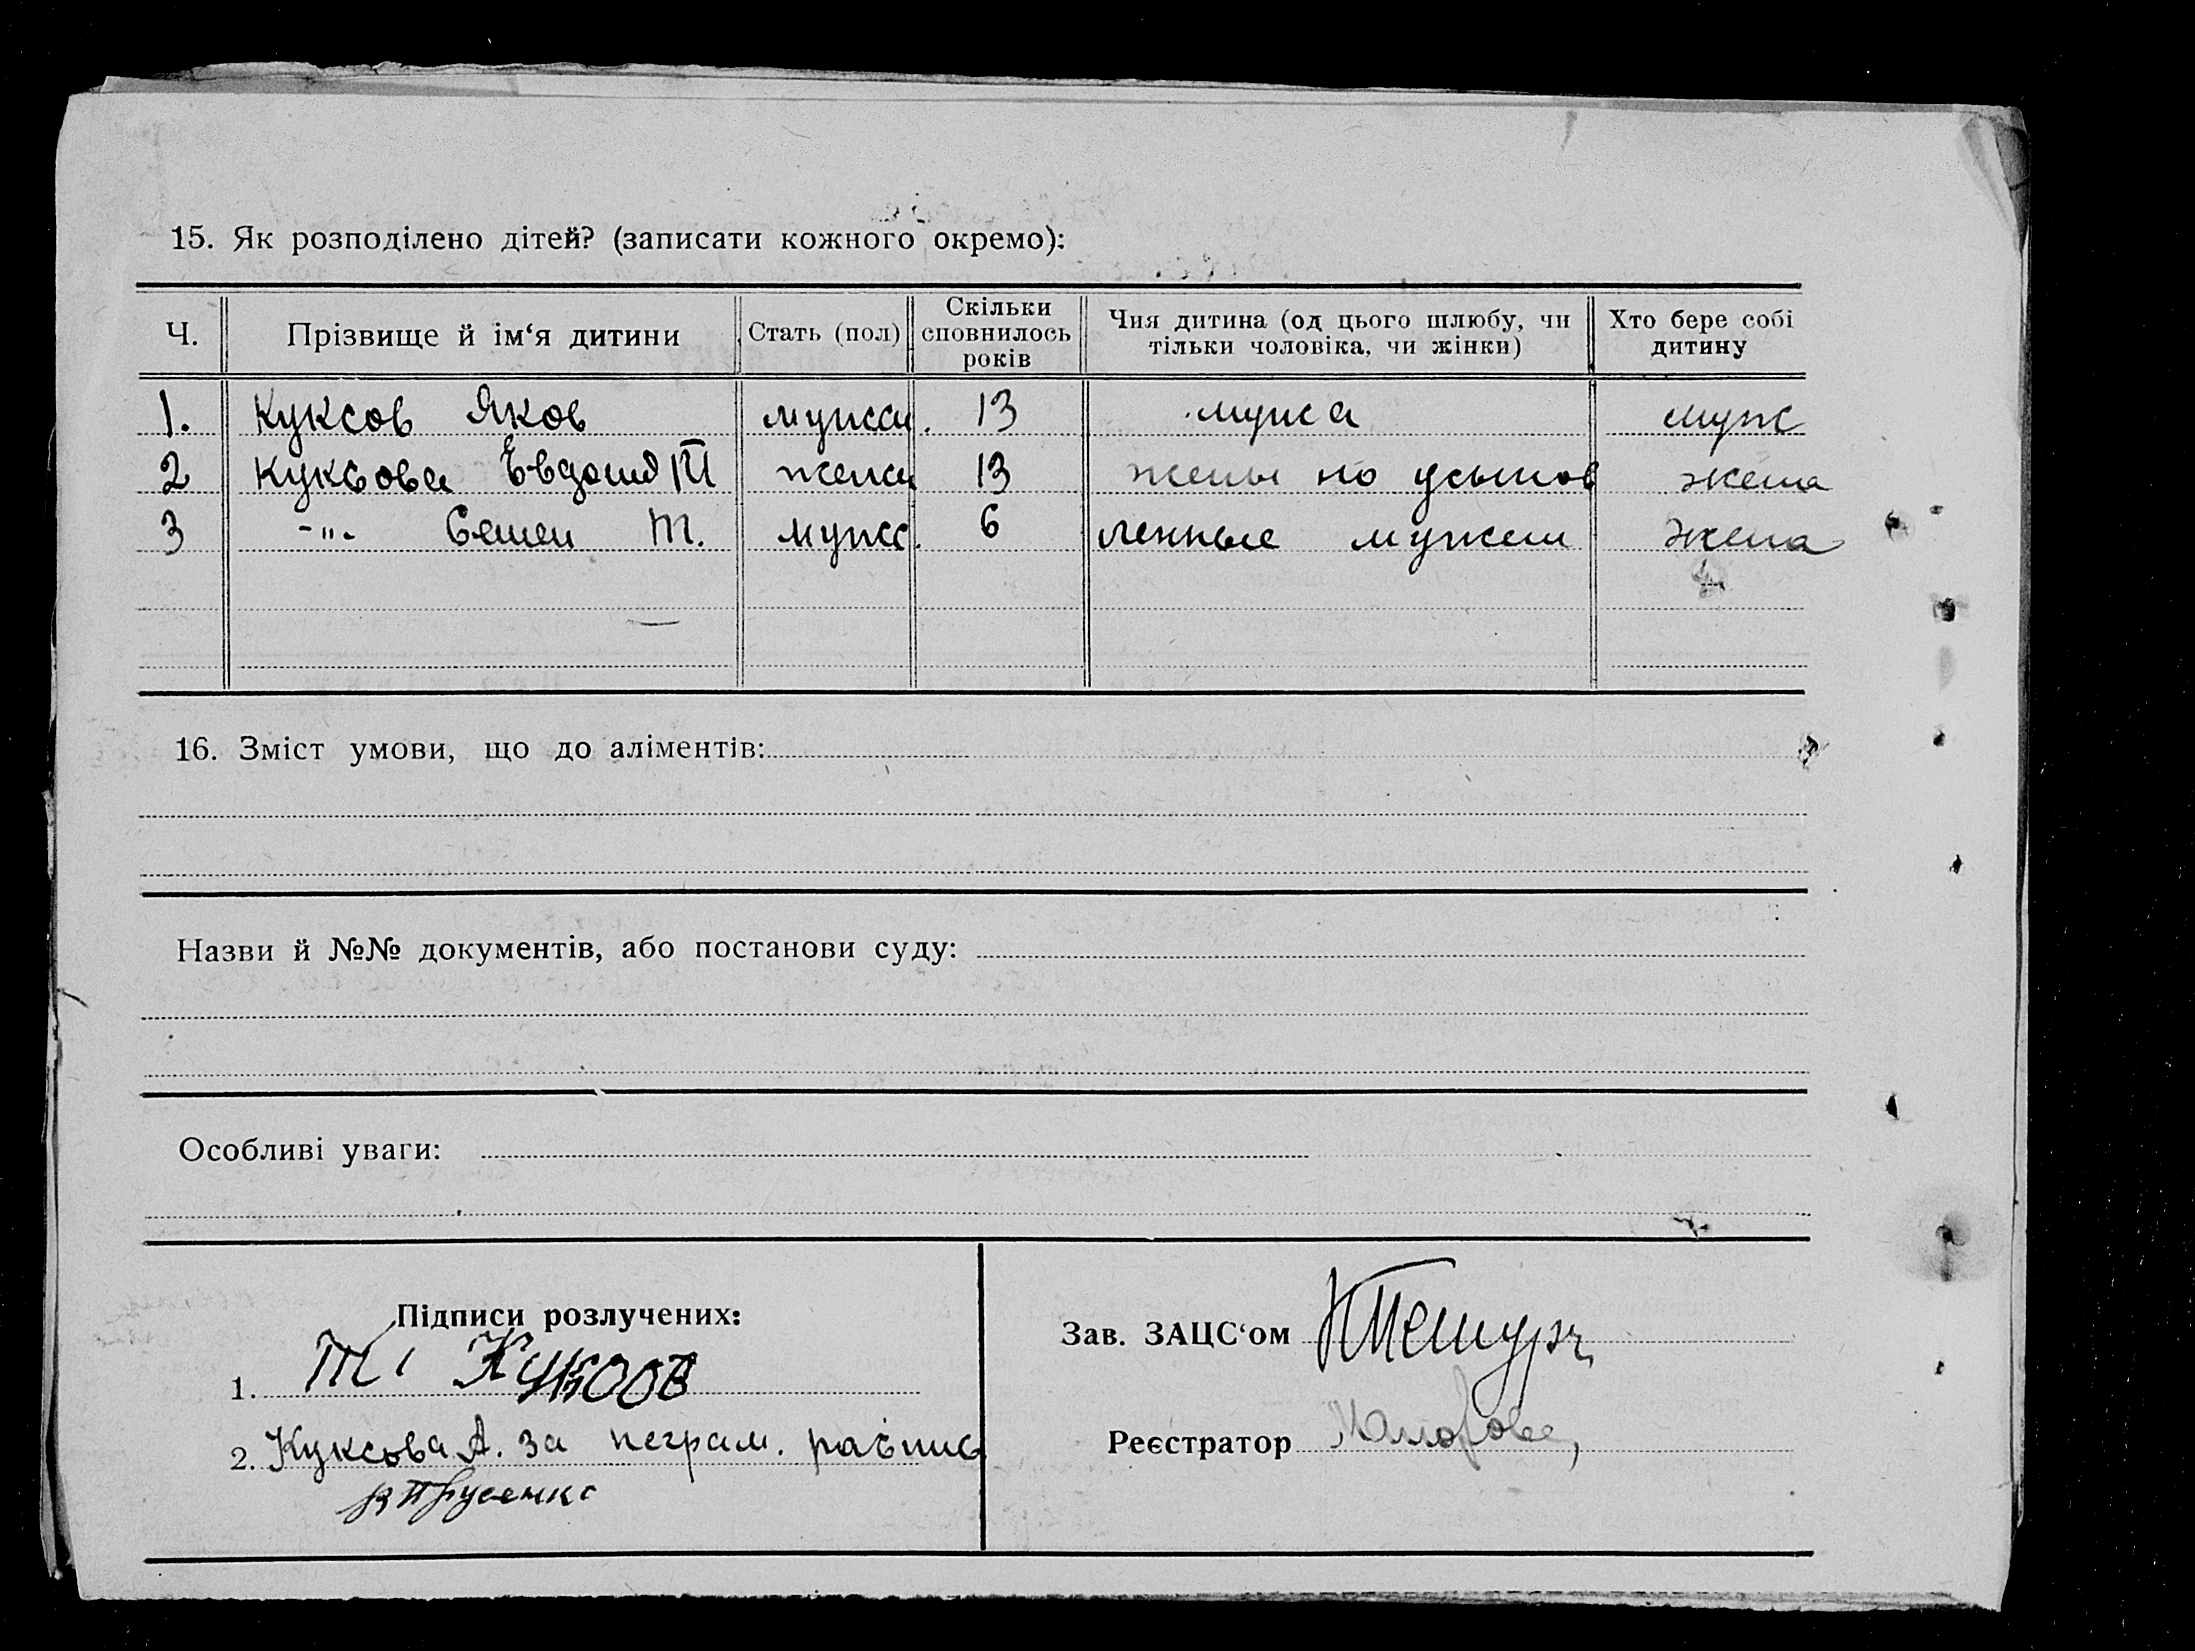 15. Як розподілено дітей? (записати кожного окремо):
Ч. Прізвище й ім‘я дитини Стать (пол) Скільки сповнилось років Чия дитина (од цього шлюбу, чи тільки чоловіка, чи жінки) Хто бере собі дитину
1. Куксов Яков мужск. 13 мужа муж
2 Куксова Евдокия Т женск 13 жены но усынов жена
3 -"- Семен Т. мужс. 6 ленные мужем жена
16. Зміст умови, що до аліментів:
Назви й №№ документів, або постанови суду:
Особливі уваги:
Підписи розлучених:
1. Т Куксов
2. Куксова А. за неграм. распис
Зав. ЗАЦС‘ом
Реєстратор